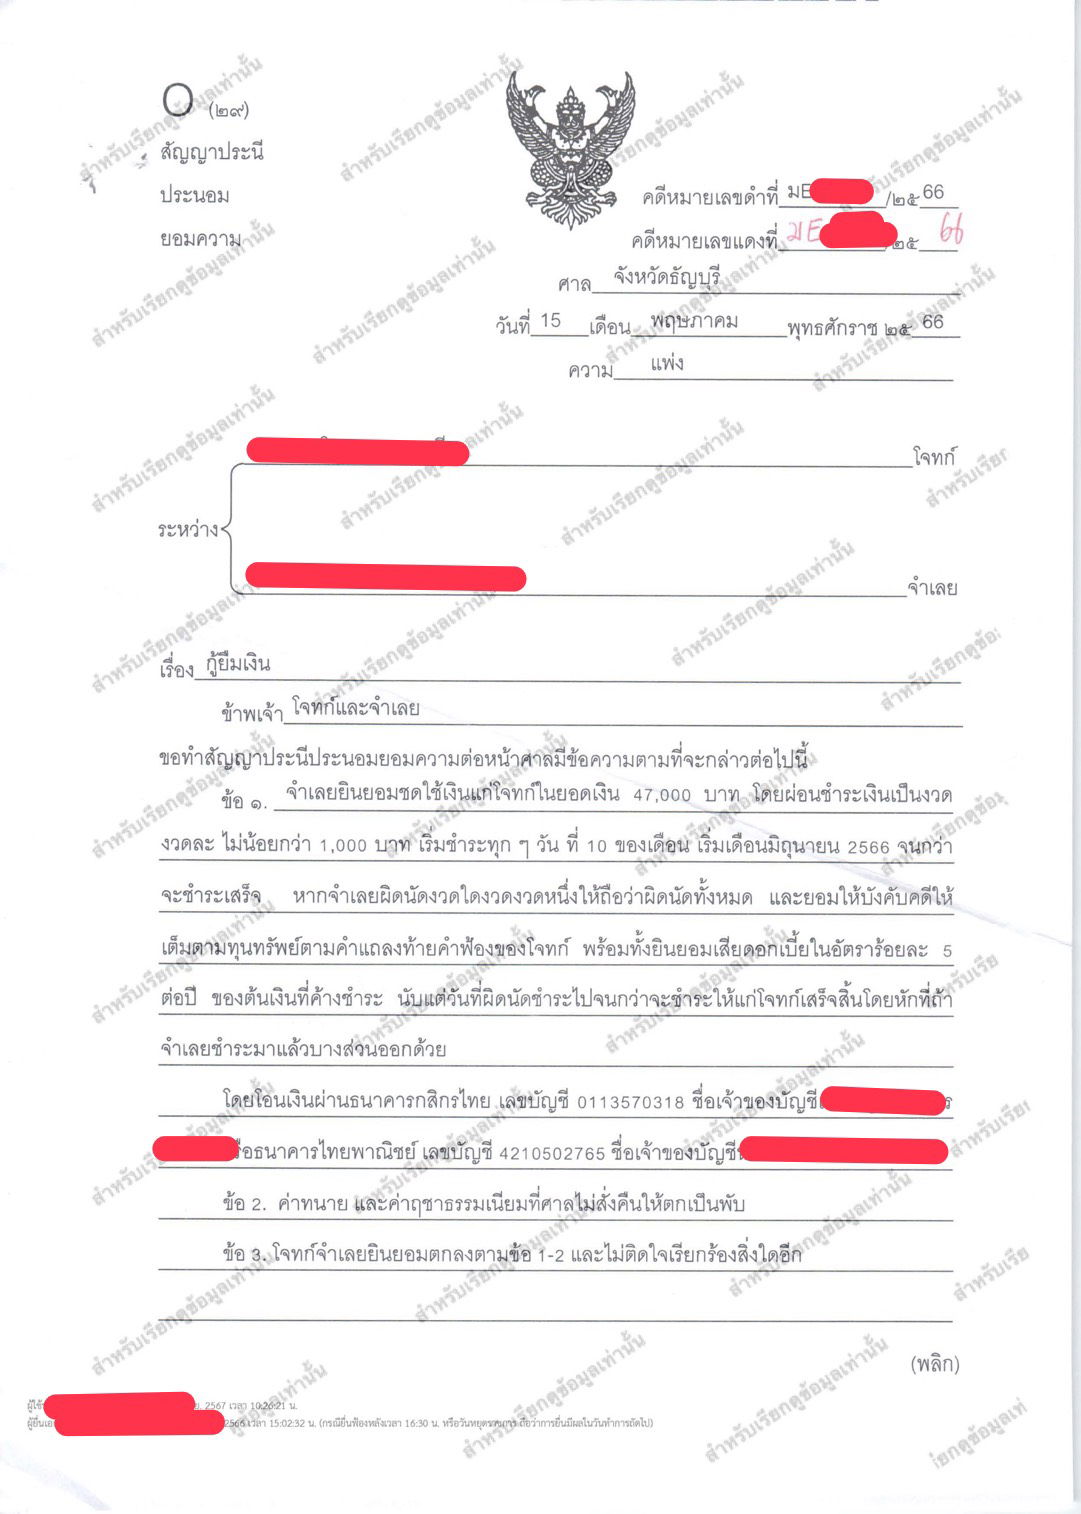 ๐ (๒๙)
สัญญาประนี
ประนอม
ยอมความ
คดีหมายเลขดำที่ มE /๒๕ 66
คดีหมายเลขแดงที่ มE /๒๕ 66
ศาล จังหวัดธัญบุรี
วันที่ 15 เดือน พฤษภาคม พุทธศักราช ๒๕ 66
ความ แพ่ง
โจทก์
ระหว่าง
จำเลย
เรื่อง กู้ยืมเงิน
ข้าพเจ้า โจทก์และจำเลย
ขอทำสัญญาประนีประนอมยอมความต่อหน้าศาลมีข้อความตามที่จะกล่าวต่อไปนี้
ข้อ ๑. จำเลยยินยอมชดใช้เงินแก่โจทก์ในยอดเงิน 47,000 บาท โดยผ่อนชำระเงินเป็นงวด
งวดละ ไม่น้อยกว่า 1,000 บาท เริ่มชำระทุก ๆ วัน ที่ 10 ของเดือน เริ่มเดือนมิถุนายน 2566 จนกว่า
จะชำระเสร็จ หากจำเลยผิดนัดงวดใดงวดงวดหนึ่งให้ถือว่าผิดนัดทั้งหมด และยอมให้บังคับคดีให้
เต็มตามทุนทรัพย์ตามคำแถลงท้ายคำฟ้องของโจทก์ พร้อมทั้งยินยอมเสียดอกเบี้ยในอัตราร้อยละ 5
ต่อปี ของต้นเงินที่ค้างชำระ นับแต่วันที่ผิดนัดชำระไปจนกว่าจะชำระให้แก่โจทก์เสร็จสิ้นโดยหักที่ถ้า
จำเลยชำระมาแล้วบางส่วนออกด้วย
โดยโอนเงินผ่านธนาคารกสิกรไทย เลขบัญชี 0113570318 ชื่อเจ้าของบัญชี
รือธนาคารไทยพาณิชย์ เลขบัญชี 4210502765 ชื่อเจ้าของบัญชี
ข้อ 2. ค่าทนาย และค่าฤชาธรรมเนียมที่ศาลไม่สั่งคืนให้ตกเป็นพับ
ข้อ 3. โจทก์จำเลยยินยอมตกลงตามข้อ 1-2 และไม่ติดใจเรียกร้องสิ่งใดอีก
(พลิก)
ผู้ใช้ 2567 เวลา 10:26:21 น.
ผู้ยื่นเอ 2566 เวลา 15:02:32 น. (กรณียื่นฟ้องหลังเวลา 16:30 น. หรือวันหยุดราชการ ถือว่าการยื่นมีผลในวันทำการถัดไป)
สำหรับเรียกดูข้อมูลเท่านั้น